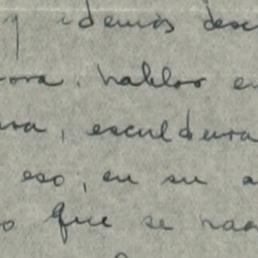 y demás desc
ora. hablar en
ura, escultura
eso, en su a
o que se haa